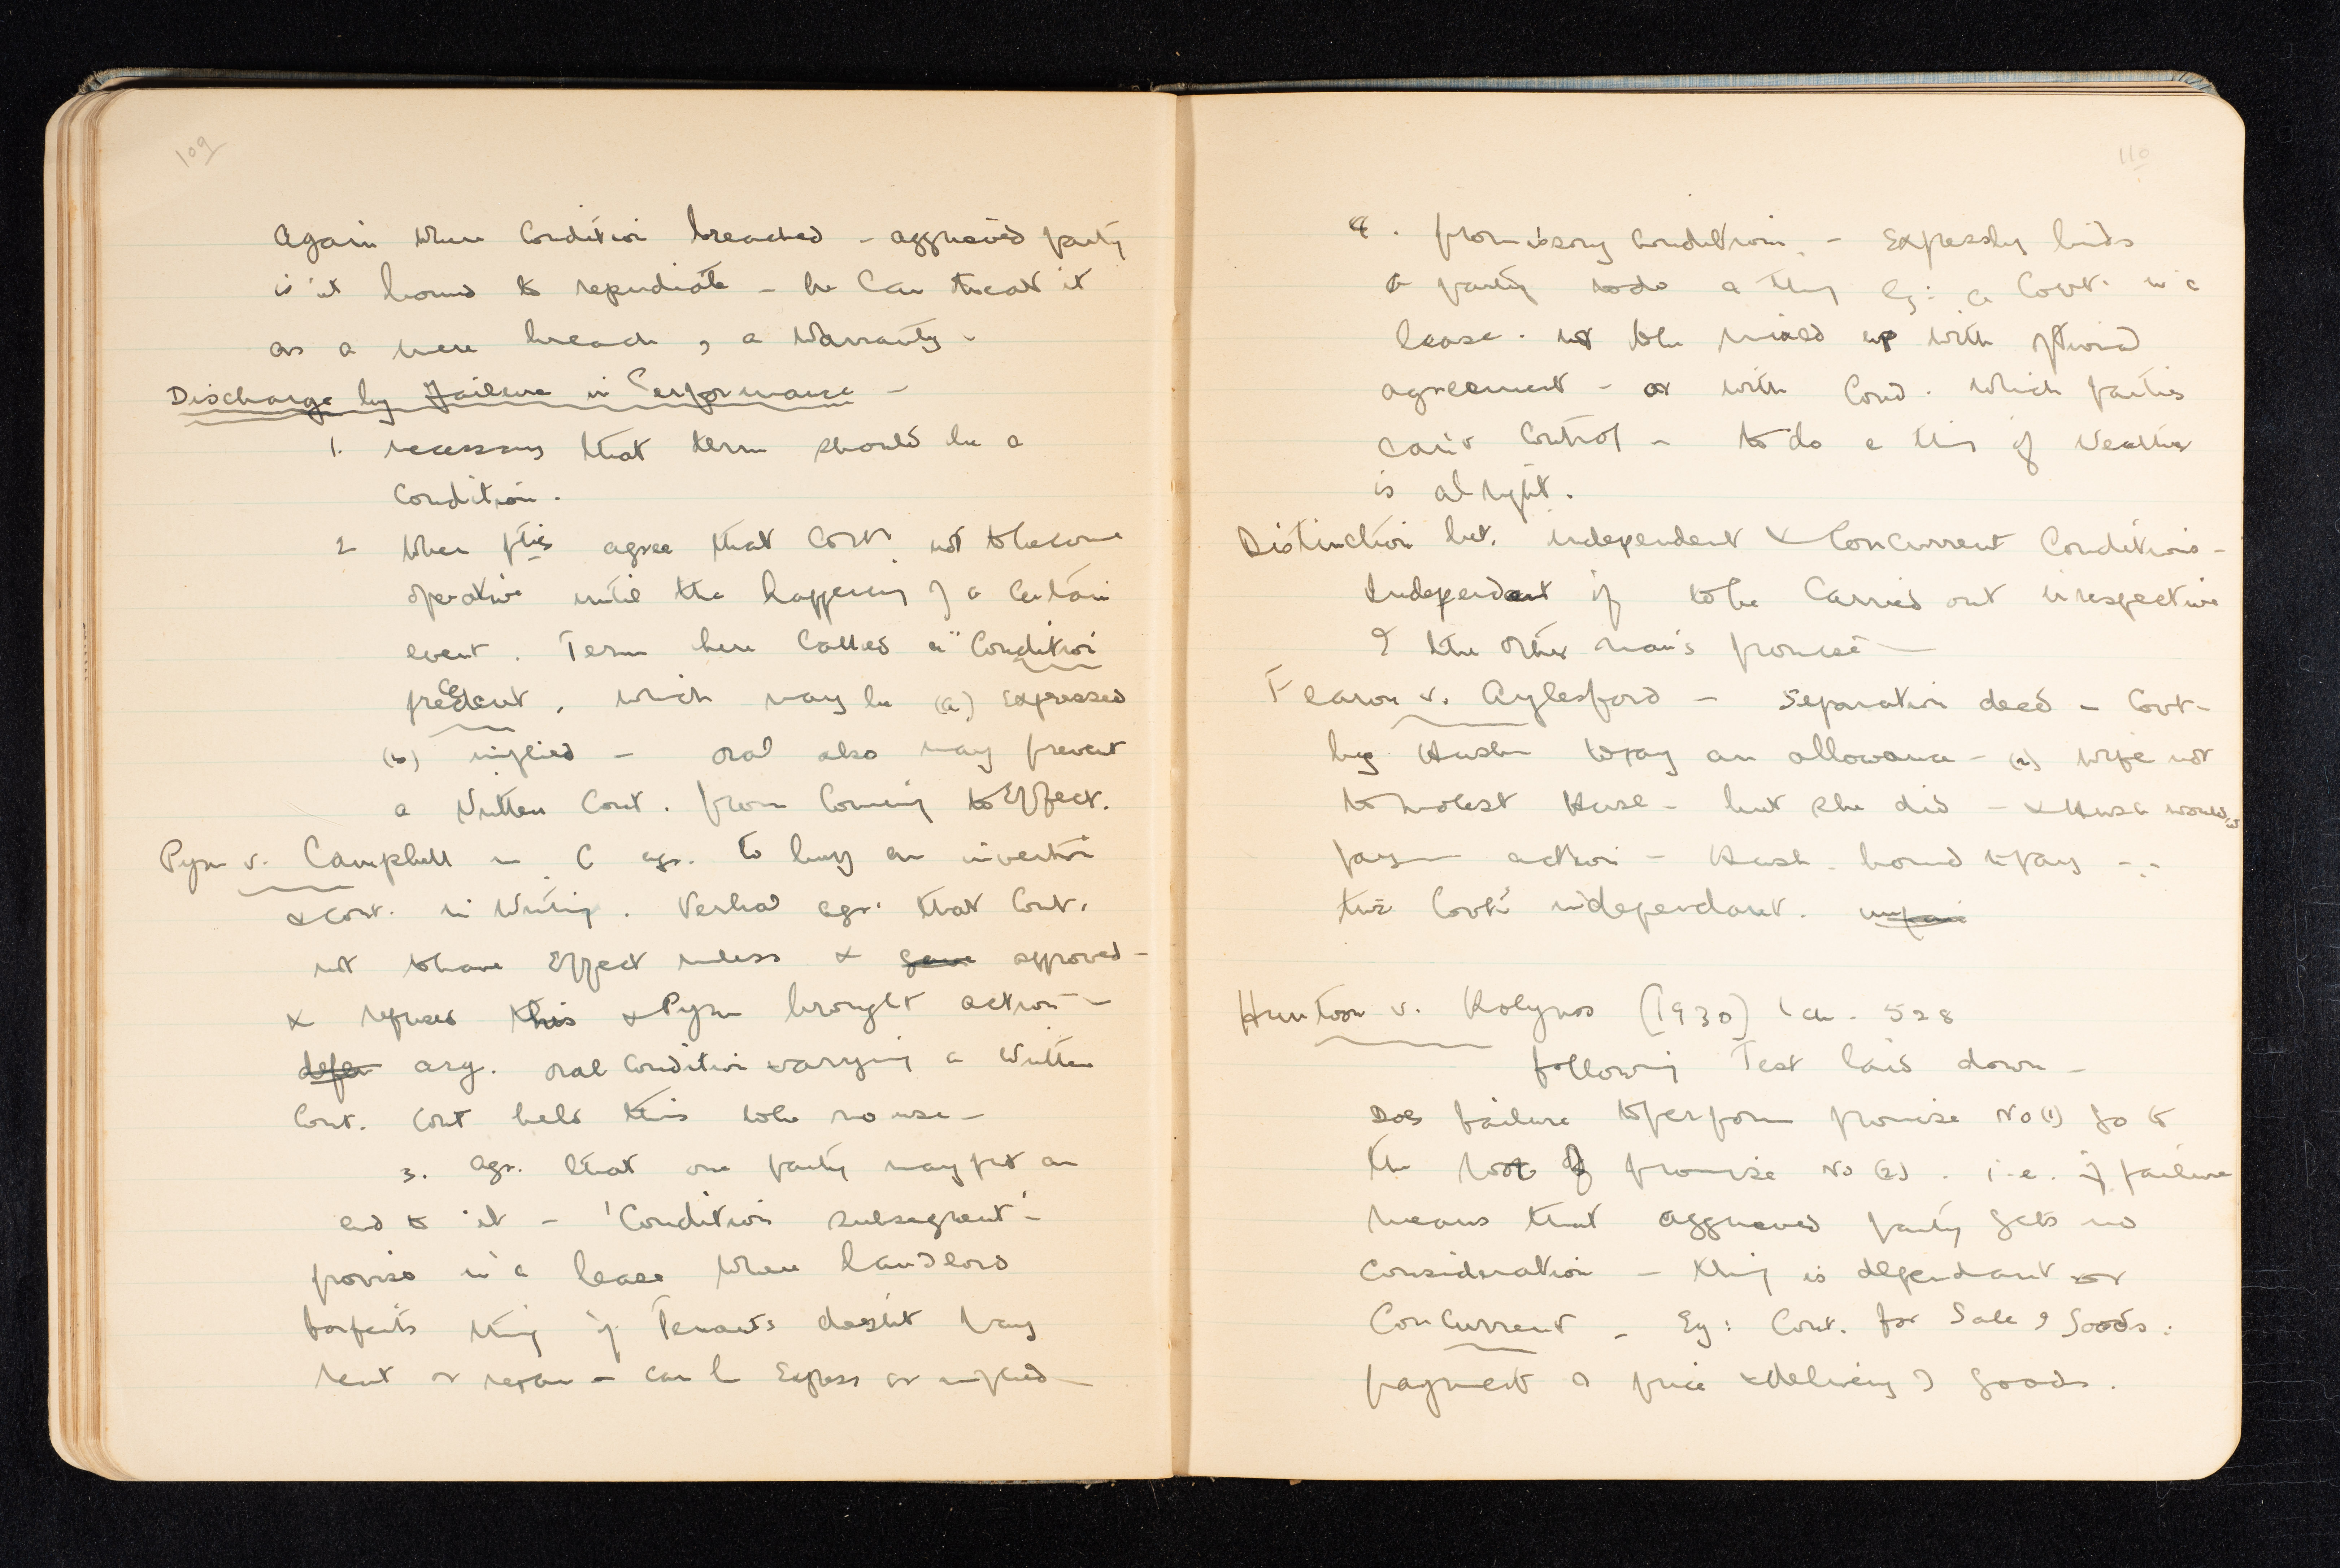 109
Again where Condition breached - aggrieved party
is n't bound to repudiate - he Can treat it
as a mere breach, a Warranty -
Discharge by Failure in Performance -
1. necessary that term should be a
Condition.
2 When pties agree that Cont not to become
operative until the happening of a Certain
event. Term here Called a "Condition
precedent, which may be (a) Expressed
(b) implied - oral also may prevent
a Written Cont. from Coming to Effect.
Pym v. Campbell - C agr. to buy an invention
& Cont. in Writing. Verbal agr. that Cont.
not to have Effect unless X gave approved -
X refused this & Pym brought action -
defen arg. oral Condition varying a Written
Cont. Cort held this to be no use -
3. agr. that one party may put an
end to it - 'Condition subsequent' -
proviso in a lease When Landlord
forfeits thing if Tenants doesn't pay
rent or repair - can be Express or implied -
110
4. promissory Condition. - Expressly binds
a party to do a thing Eg: a Covt. in a
lease. not to be mixed up with
agreement - or with Cond. Which parties
can't Control - to do a thing if Weather
is alright.
Distinction bet. independent & Concurrent Conditions -
Independent if to be Carried out irrespective
of the other man's promise -
Fearon v. Aylesford - Separation deed - Covt -
by Husb to pay an allowance - (2) Wife not
to molest Husb - but she did - & Husb would n't
pay - action - Husb. bound to pay -
two Covts independant.
Huntoon v. Kolynos [1930] 1 Ch. 528
following Test laid down -
Does failure to perform promise No (1) go to
the root of promise No (2). i.e. if failure
means that aggrieved party gets no
Consideration - thing is dependant or
Concurrent - Eg: Cont. for Sale of Goods:
payment of price & delivery of goods.